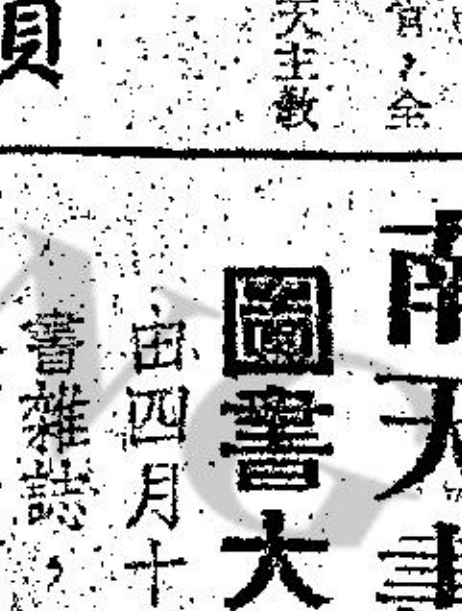 全
天主教
南天書
圖書大
由四月十
書雜誌，